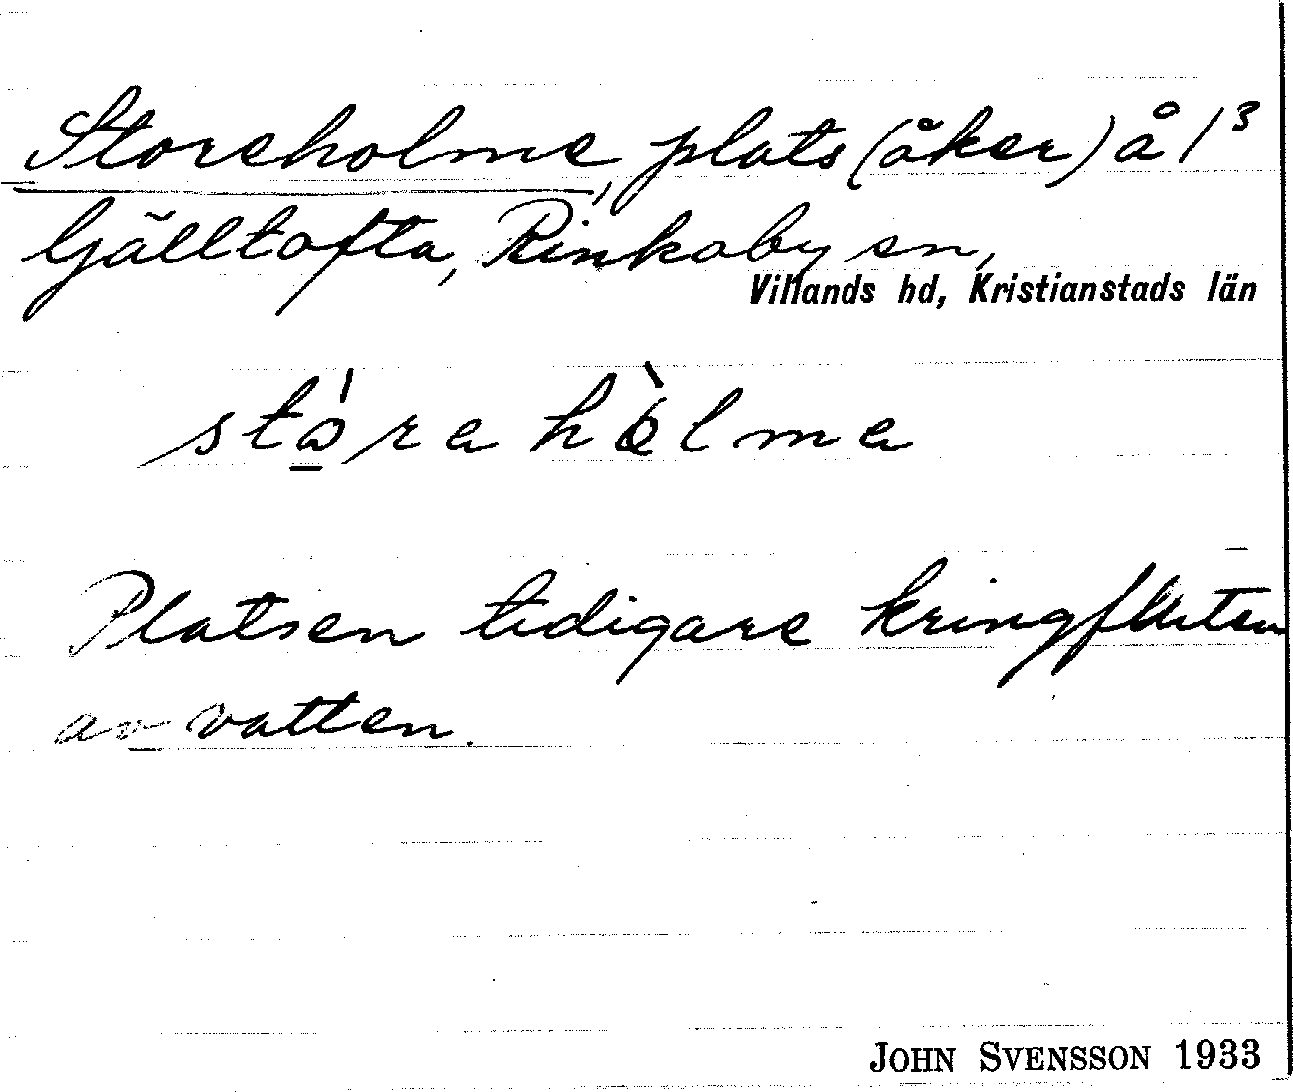 Storeholme, plats (åker) å 1³
Gälltofta, Rinkaby sn,
Villands hd, Kristianstads län
stóra hòlma
Platsen tidigare kringfluten
av vatten.
JOHN SVENSSON 1933